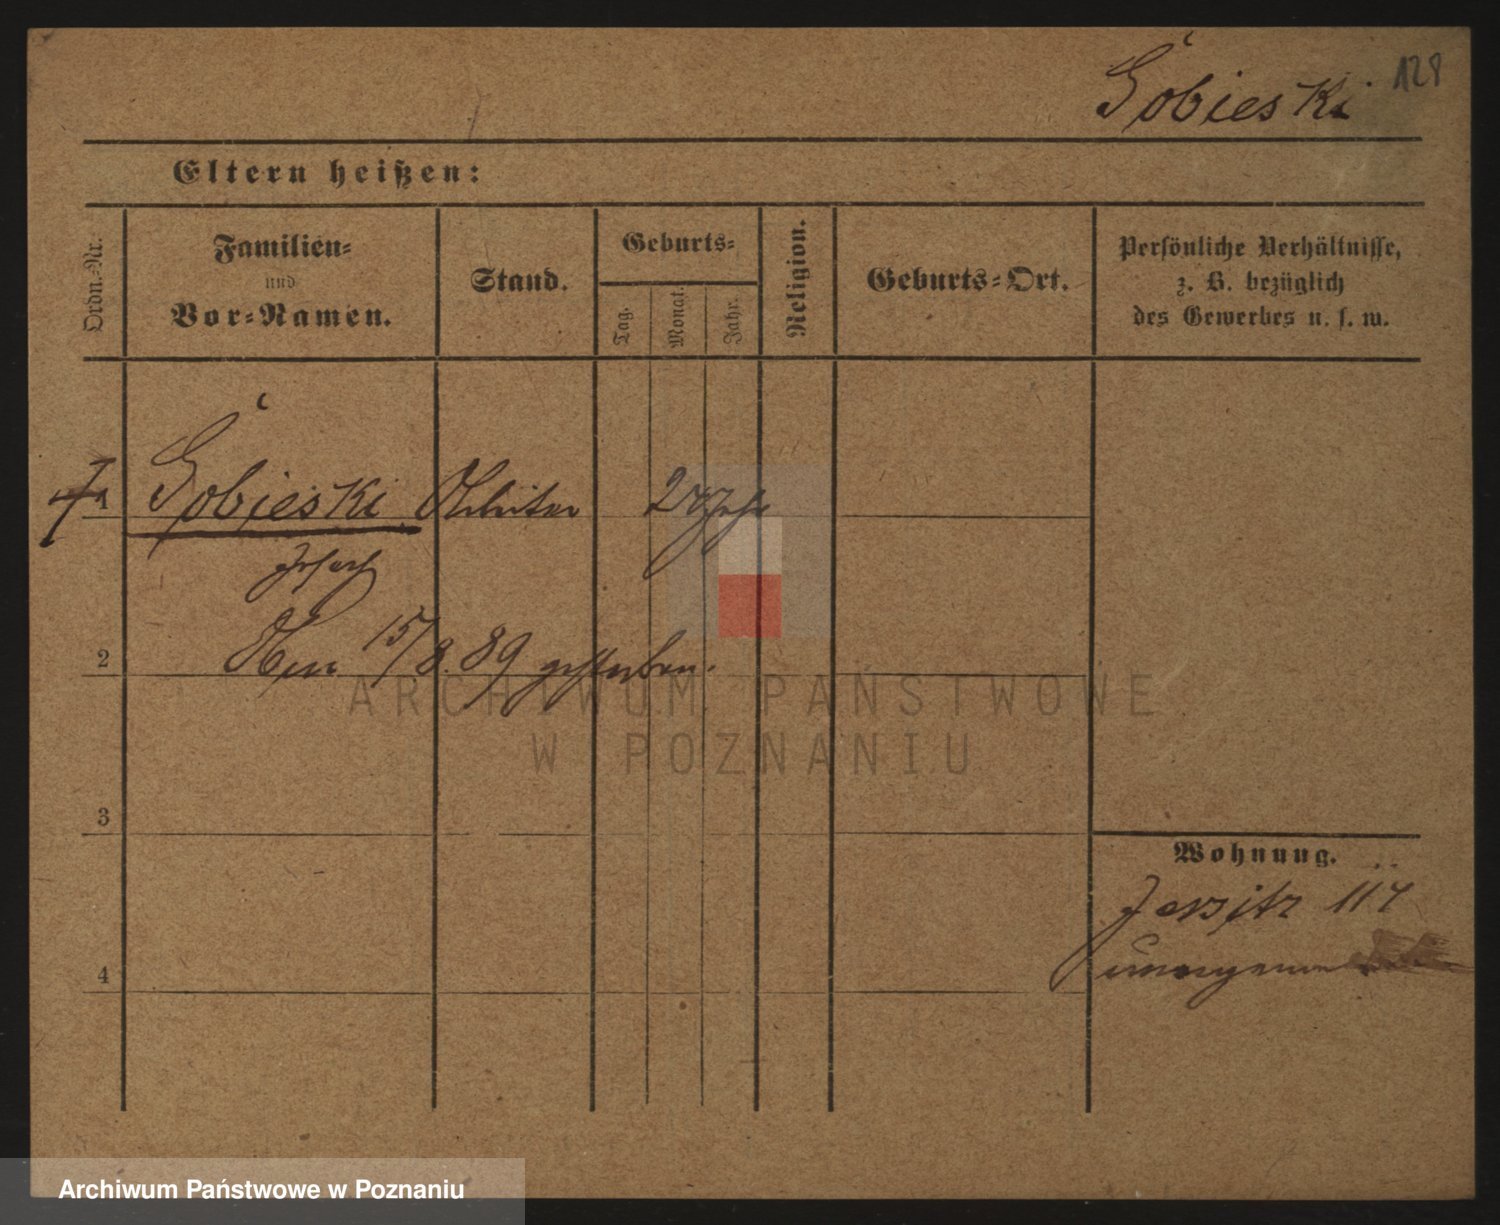 128
Sobieski
Eltern heißen:
Ordn.-Nr.
Familien-
und
Vor-Namen.
Stand.
Geburts-
Tag.
Monat.
Jahr.
Religion.
Geburts-Ort.
Persönliche Verhältnisse,
z. B. bezüglich
des Gewerbes u. s. w.
1
Sobieski Arbeiter
Josef
2
15/8. 89 gestorben.
ARCHIWUM PAŃSTWOWE
W POZNANIU
3
Wohnung.
Jersitz 117
4
Archiwum Państwowe w Poznaniu